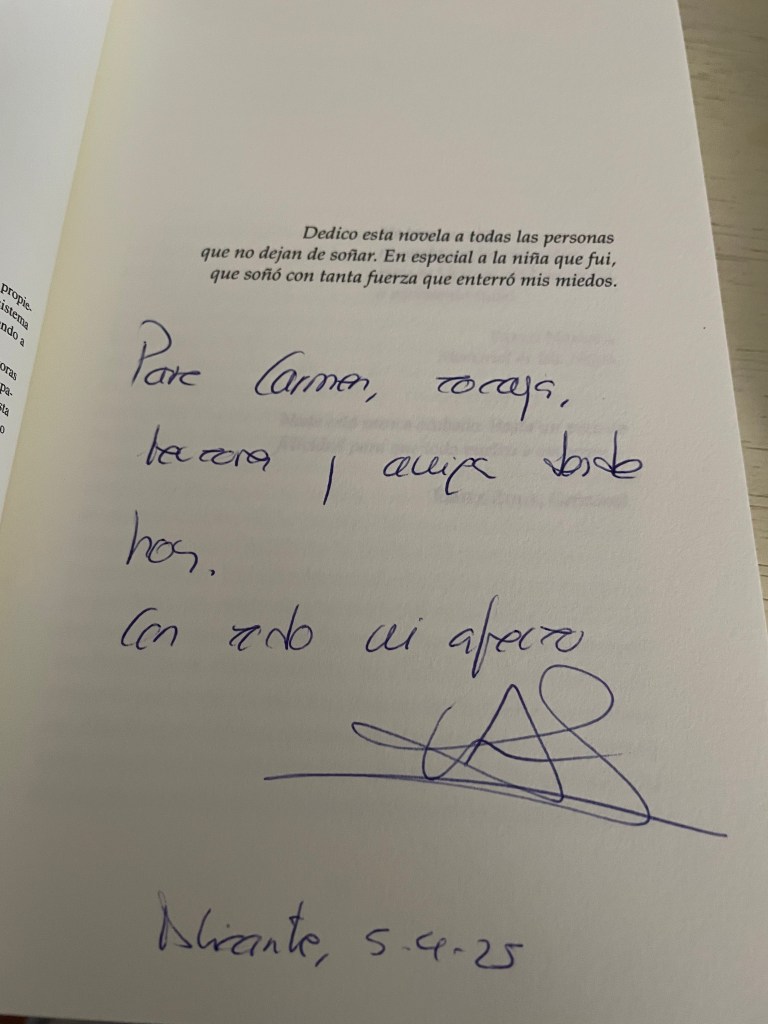 Dedico esta novela a todas las personas
que no dejan de soñar. En especial a la niña que fui,
que soñó con tanta fuerza que enterró mis miedos.
Para Carmen, tocaya,
lectora y amiga desde
hoy.
Con todo mi afecto
Alicante, 5-4-25
propie-
istema
ndo a
oras
pa-
sta
o